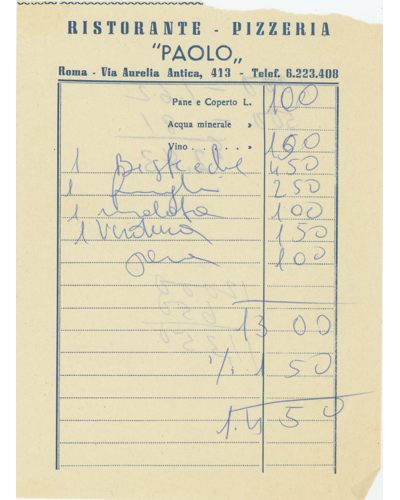 RISTORANTE - PIZZERIA
"PAOLO„
Roma - Via Aurelia Antica, 413 - Telef. 6.223.408
Pane e Coperto L. 100
Acqua minerale »
Vino . . . . . . » 150
1 Bistecche 450
1 funghi 250
1 insalata 100
1 Verdura 150
pera 100
1300
% 150
1.450